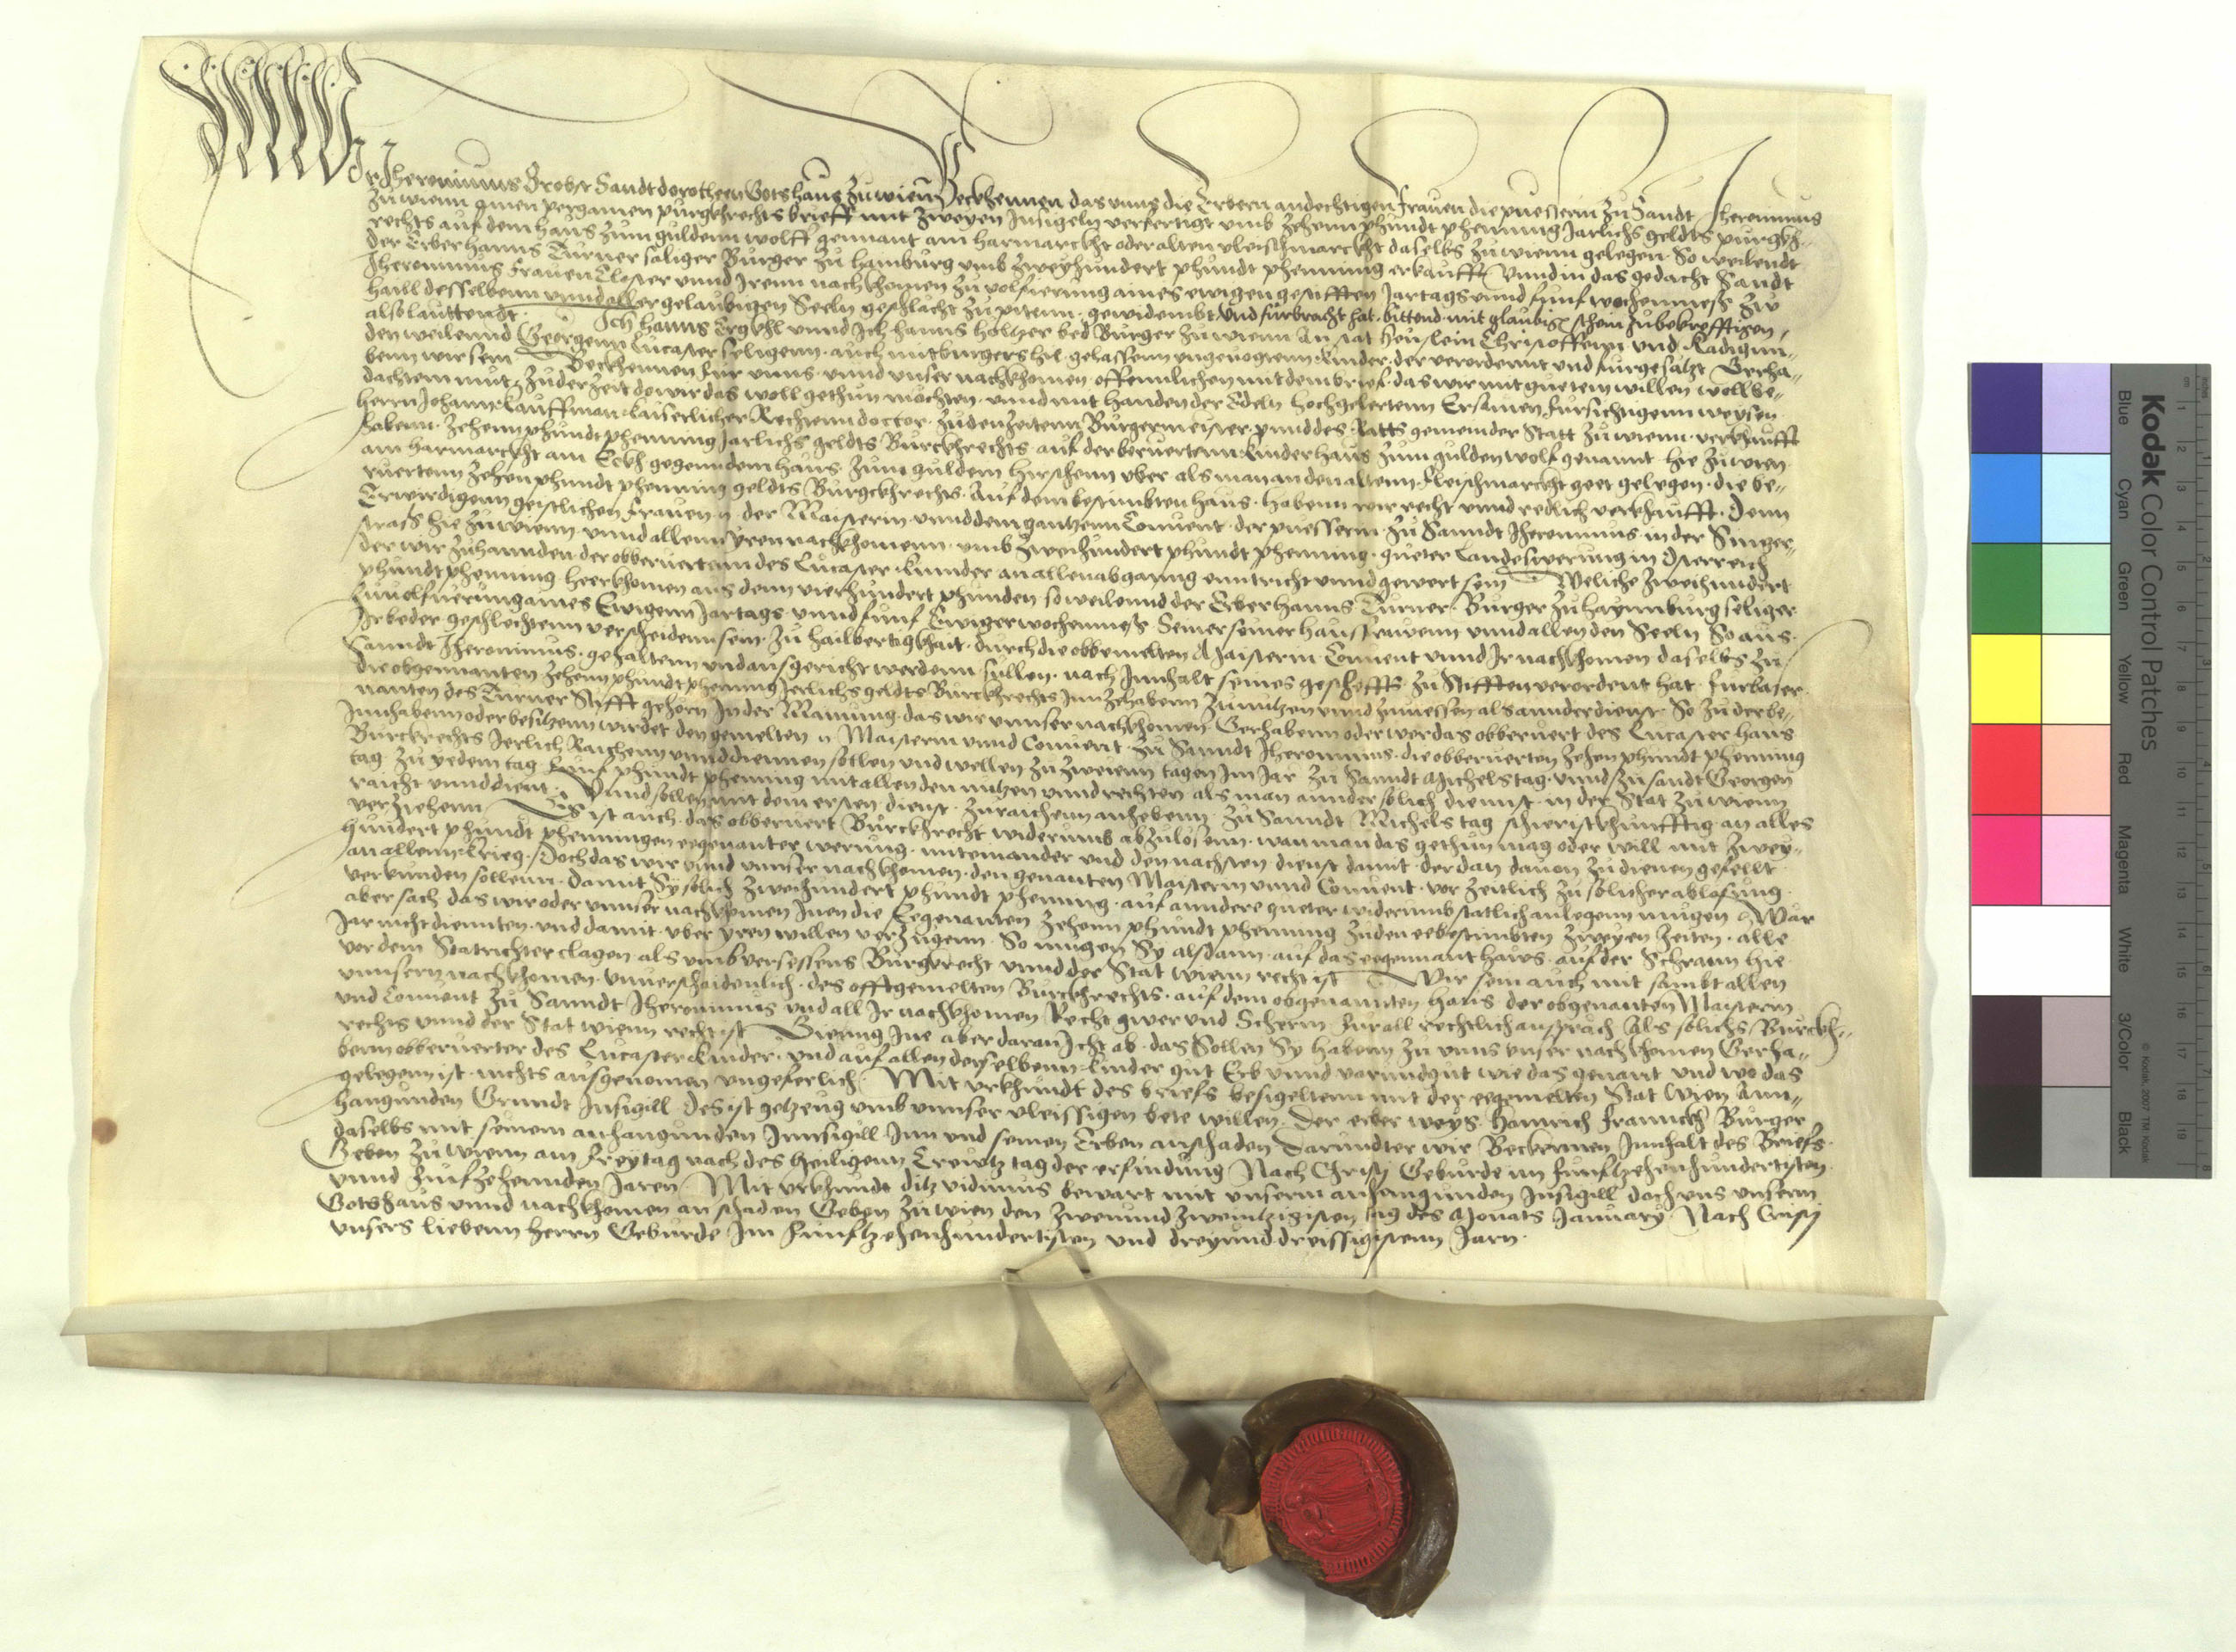 Wir Jheronimus Brobst Sandt dorotheen Gotshaus zu wienn Beckhennen das unns die Erbern andechtigen frauen die puesserin zu Sandt Jheronimus
zu wienn ainen pergamen purgkhrechts brieff mit zweyen Insigeln verfertigt umb zehenn phundt phenning Jarlichs geldts purgkh-
rechts auf dem haus zum gulden wolff gennant am harmarckht oder alten vleischmarckht daselbs zu wienn gelegen. So weilendt
der Erber Hanns Turner saliger Burger zu hamburg umb zweyhundert phundt phenning erkaufft unnd in das gedacht Sandt
Jheronimus frauen Closter unnd Irenn nachkhomen zu volfuerung aines ewigen gestifften Jartags unnd funf wochenmess zw
haill desselbenn unnd aller gelaubigen Seeln geschlacht zu pitenn. gewidembt. Und furbracht hat. bittend. mit glaubigen schein zu bekrefftigen,
also lauttendt. Ich Hanns Ergkhl unnd Ich Hanns holtzer bed Burger zu wienn An stat Christoffenn und Radigun-
den weilennd Georgenn Lucaster seligenn. auch mitburgers hie. gelassenn ungevogtenn kinder. der verordennt und furgesatzt Gerha-
benn wir sein Beckhennen fur unns. unnd unser nachkhomen offennlichen mit dem brief. das wir mit guetem willen wollbe-
dachtem mut, zu der zeit do wir das woll gethun mochten. unnd mit handen der Edeln hochgelertenn Ersamen fursichtigenn weysen.
herrn Johann kauffman. kaiserlicher Rechtenn doctor. zu den zeitenn Burgermeister. unnd des Ratts gemeinder Statt zu wienn. verkhaufft
habenn. zehenn phundt phenning Jarlichs geldts Burckhrechts. auf der beruertenn kinder haus zum gulden wolf genannt. hie zu wien
am harmarckht am Eckh gegenn dem haus. zum guldenn hirschenn uber als man an den altenn. fleischmarckht geet gelegen. die be-
ruertenn zehen phundt phenning geldts Burgckhrechts. Auf dem bestimbten haus. habenn wir recht unnd redlich verkhaufft. Denn
Erwirdigenn geistlichen frauen n. der Maisterin unnd dem gantzenn Convent. der puesserin. zu Sanndt Jheronimus. in der Singer-
strass hie zu wienn. unnd allenn yren nachkhomenn. umb zweihundert phundt phenning. gueter Landeswerung in Osterreich
der wir zu hannden. der obberuertenn des Lucaster kinder an allen abganng entricht unnd gewert sein Weliche zweihundert
phundt phenning heerkhomen aus denn vierhundert phunden so weilennd der Erber Hanns Turner. Burger zu haymburg seliger
zu volfuerung aines Ewigenn Jartags unnd funf Ewiger wochenmess. Seiner seiner hausfrauenn unnd allen den Seeln So aus
Ir beder geschlechtenn verscheidenn sein. zu hailbertigkhait. durch die obbemelten Maisterin Convent unnd Ir nachkhomen daselbs zu
Sanndt Jheronimus. gehaltenn und ausgericht werdenn sullen. nach Innhalt seines gescheffts. zu Stifften verordent hat. furbaser
die obgennanten zehenn phundt phenning Jerlichs geldts Burckhrechts Inn zehabenn zu nutzen unnd zu niessen als annder dienst So zu der be-
nanten des Turner Stifft gehorn In der Mainung. das wir unnser nachkhomen Gerhabenn oder wer das obberuert des Lucaster haus
Innhabenn oder besitzenn wirdet den gemelten n Maisterin unnd Convent. zu Sanndt Jheronimus. die obberuerten zehen phundt phenning
Burckrechts Jerlich Raichenn unnd diennen sollen und wellen zu zweienn tagen Im Jar. zu Sanndt Michels tag. unnd zu sandt Georgen
tag zu yedem tag funf phundt phening mit allen den nutzen unnd rechten als man annder solich dienst. in der Stat zu wienn
raicht unnd dient. Unnd sollen mit dem ersten dienst. zu raichenn anhebenn. zu Sanndt Michels tag schieristkhunfftig. an alles
verziehenn Es ist auch. das obberuert Burckhrecht widerumb abzulosenn. wan man das gethun mag oder will mit zwey-
hundert phundt phenningen eegenanter werung. miteinander und den nachsten dienst damit. der dan davon zu dienen gefellt
an allenn krieg. Doch das wir unnd unnser nachkhomen. den genanten Maisterin unnd Convent. vor zeitlich zu solicher ablosung.
verkunden sollenn. damit Sy solich zweihundert phundt phenning. auf anndere gueter widerumb statlich anlegenn mugen War
aber sach das wir oder unnser nachkhomen Inen die Eegenanten zehenn phundt phenning zu den eebestimbten zweyen zeiten. alle
Jar nicht diennten. und damit. uber yren willen verzugenn. So mugen Sy alsdann. auf das eegennant haws. auf der Schrann hie
vor dem Statrichter clagen als umb versessens Burgkrecht unnd der Stat wienn recht ist Wir sein auch mit sambt allen
unnsern nachkhomen. unverschaidenlich. des offtgemelten Burckhrechts. auf dem obgenannten haus der obgenanten Maisterin
und Convent zu Sanndt Jheronimus und all Ir nachkhomen Recht gwer und Scherm fur all rechtlich ansprach Als solichs Burckh-
rechts unnd der Stat wienn recht ist Gienng Ine aber daran Icht ab. das Sollen Sy habenn zu unns unser nachkhomen Gerha-
benn obberuerter des Lucaster kinder. und auf allen derselbenn kinder gut Erb unnd varundgut wie das genant und wo das
gelegenn ist. nichts ausgenomen ungeferlich. Mit urkhundt des briefs besigeltenn mit der eegemelten Stat Wien Ann-
hangunden Grundt Insigill. Des ist getzeug umb unnser vleissigen bete willen. Der erber weys. Hainrich Frannckh Burger
daselbs mit seinem anhangunden Innsigill Inn und seinen Erben an schaden Darundter wir Beckennen Innhalt des Briefs.
Geben zu wienn am freytag nach des heiligenn Creutz tag der erfindung Nach Christi Geburde im funfftzehenhundertisten
unnd funfzehennden Jaren Mit urkhundt ditz vidimus bewart mit unserm anhangunden Insigill doch uns unserm
Gotshaus unnd nachkhomen an schaden Geben zu wien den zwenundzweintzigisten tag des Monats January Nach Cristi
unsers liebenn herrn Geburde Im funfftzehenhundertisten und dreyunddreissigistenn Jarn.
Kodak Color Control Patches
Blue Cyan Green Yellow Red Magenta White 3/Color Black
© Kodak, 2007 TM: Kodak